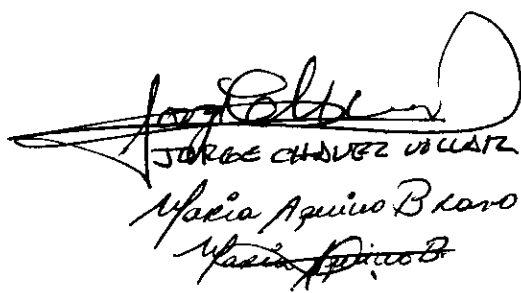 JORGE CHAVEZ VILLAR
Maria Aquino Bravo
Maria Aquino B.